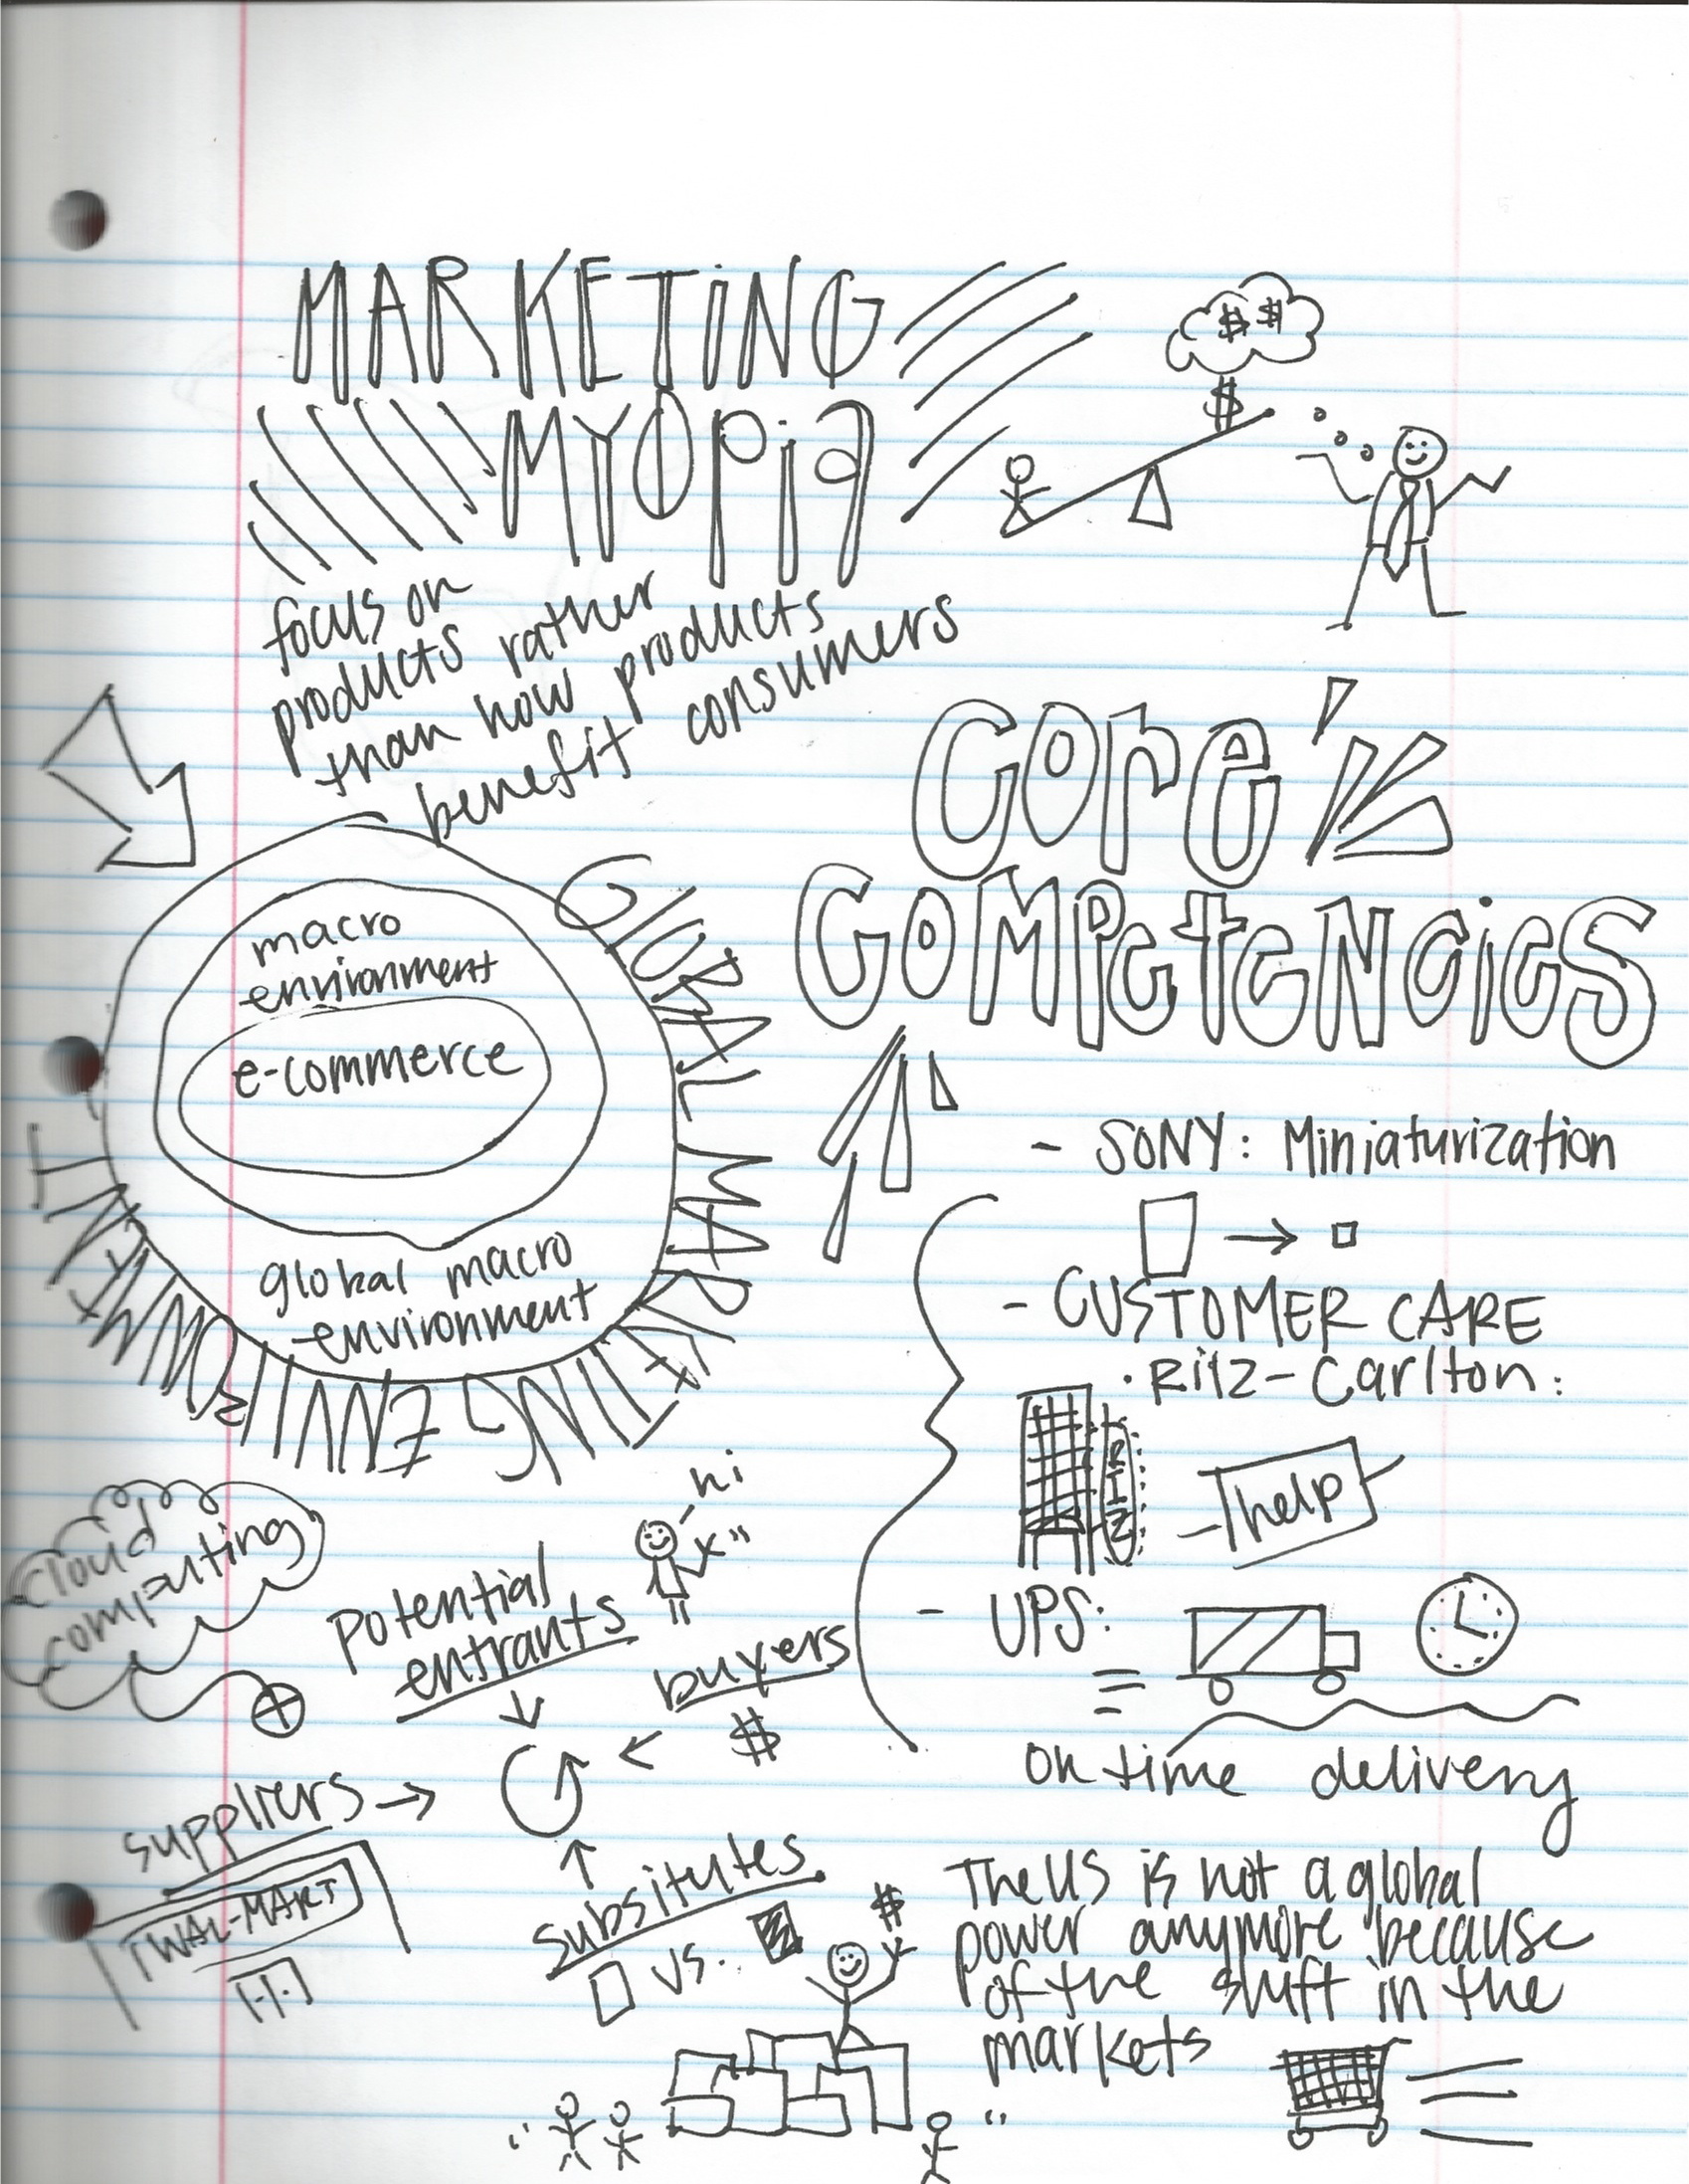 MARKETING
MYOPia
focus on
products rather
than how products
benefit consumers
$ $
$
Core
COMPeteNcieS
macro
environment
e-commerce
global macro
environment
GLOBAL MARKETING ENVIRONMENT
- SONY: Miniaturization
- CUSTOMER CARE
· Ritz-Carlton:
RITZ
help
- UPS:
on time delivery
cloud
computing
hi
potential
entrants
buyers
$
suppliers
WAL-MART
subsitutes
vs.
$
The US is not a global
power anymore because
of the shift in the
markets